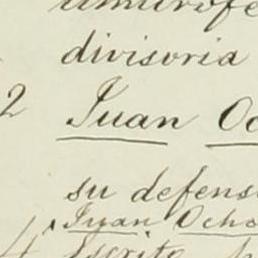 divisoria
2 Juan Oc
su defens
Juan Ocho
4 Escrito